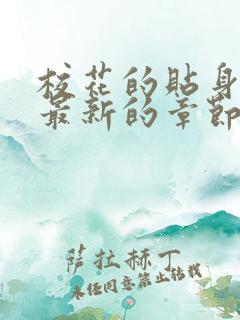 校花的贴身
最新的章节
萨拉赫丁
未经同意禁止转载